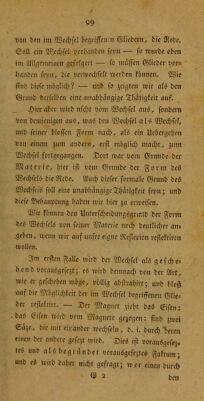 99
von den im Wechsel begriffenen Gliedern, die Rede.
Soll ein Wechsel vorhanden seyn — so wurde oben
im Allgemeinen gefolgert — so müssen Glieder vor-
handen seyn, die verwechselt werden können. Wie
sind diese möglich? — und so zeigten wir als den
Grund derselben eine unabhängige Thätigkeit auf.
Hier aber wird nicht vom Wechsel aus, sondern
von demjenigen aus, was den Wechsel als Wechsel,
und seiner blossen Form nach, als ein Uebergehen
von einem zum andern, erst möglich macht, zum
Wechsel fortgegangen. Dort war vom Grunde der
Materie, hier ist vom Grunde der Form des
Wechsels die Rede. Auch dieser formale Grund des
Wechsels soll eine unabhängige Thätigkeit seyn; und
diese Behauptung haben wir hier zu erweisen.
Wir können den Unterscheidungsgrund der Form
des Wechsels von seiner Materie noch deutlicher an-
geben, wenn wir auf unsre eigne Reflexion reflektiren
wollen.
Im ersten Falle wird der Wechsel als gesche-
hend vorausgesetzt; es wird demnach von der Art,
wie er geschehen möge, völlig abstrahirt; und bloß
auf die Möglichkeit der im Wechsel begriffenen Glie-
der reflektirt. — Der Magnet zieht das Eisen;
das Eisen wird vom Magnete gezogen: sind zwei
Säze, die mit einander wechseln, d. i. durch deren
einen der andere gesezt wird. Dies ist vorausgesez-
tes und als begründet vorausgeseztes Faktum;
und es wird daher nicht gefragt; wer einen durch
G 2
den